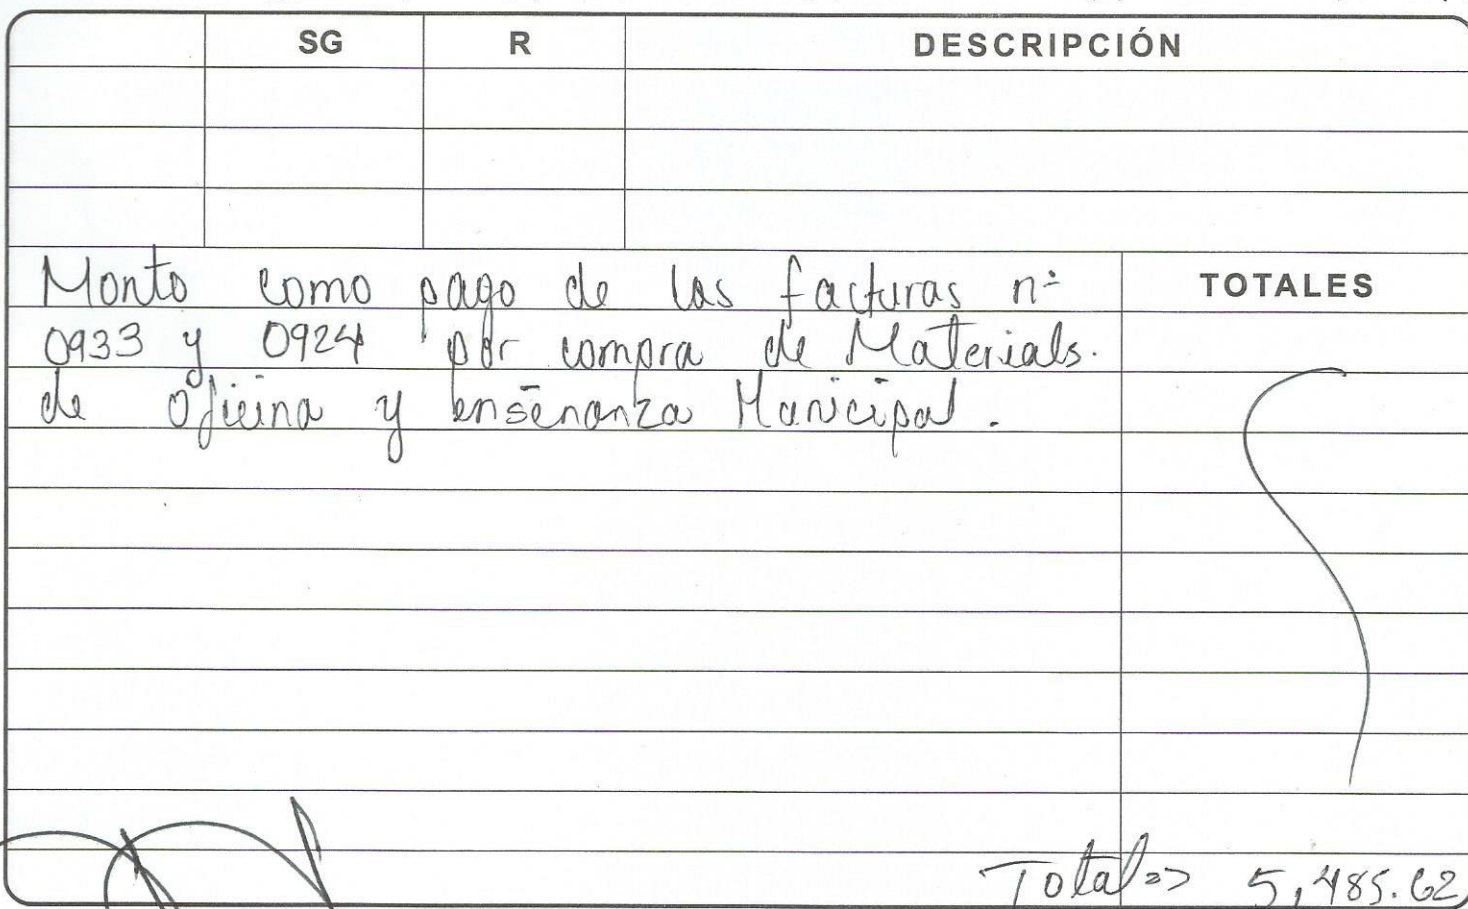 SG R DESCRIPCIÓN
Monto como pago de las facturas nº
TOTALES
0933 y 0924 por compra de Materials.
de Oficina y enseñanza Municipal.
Total => 5,485.62